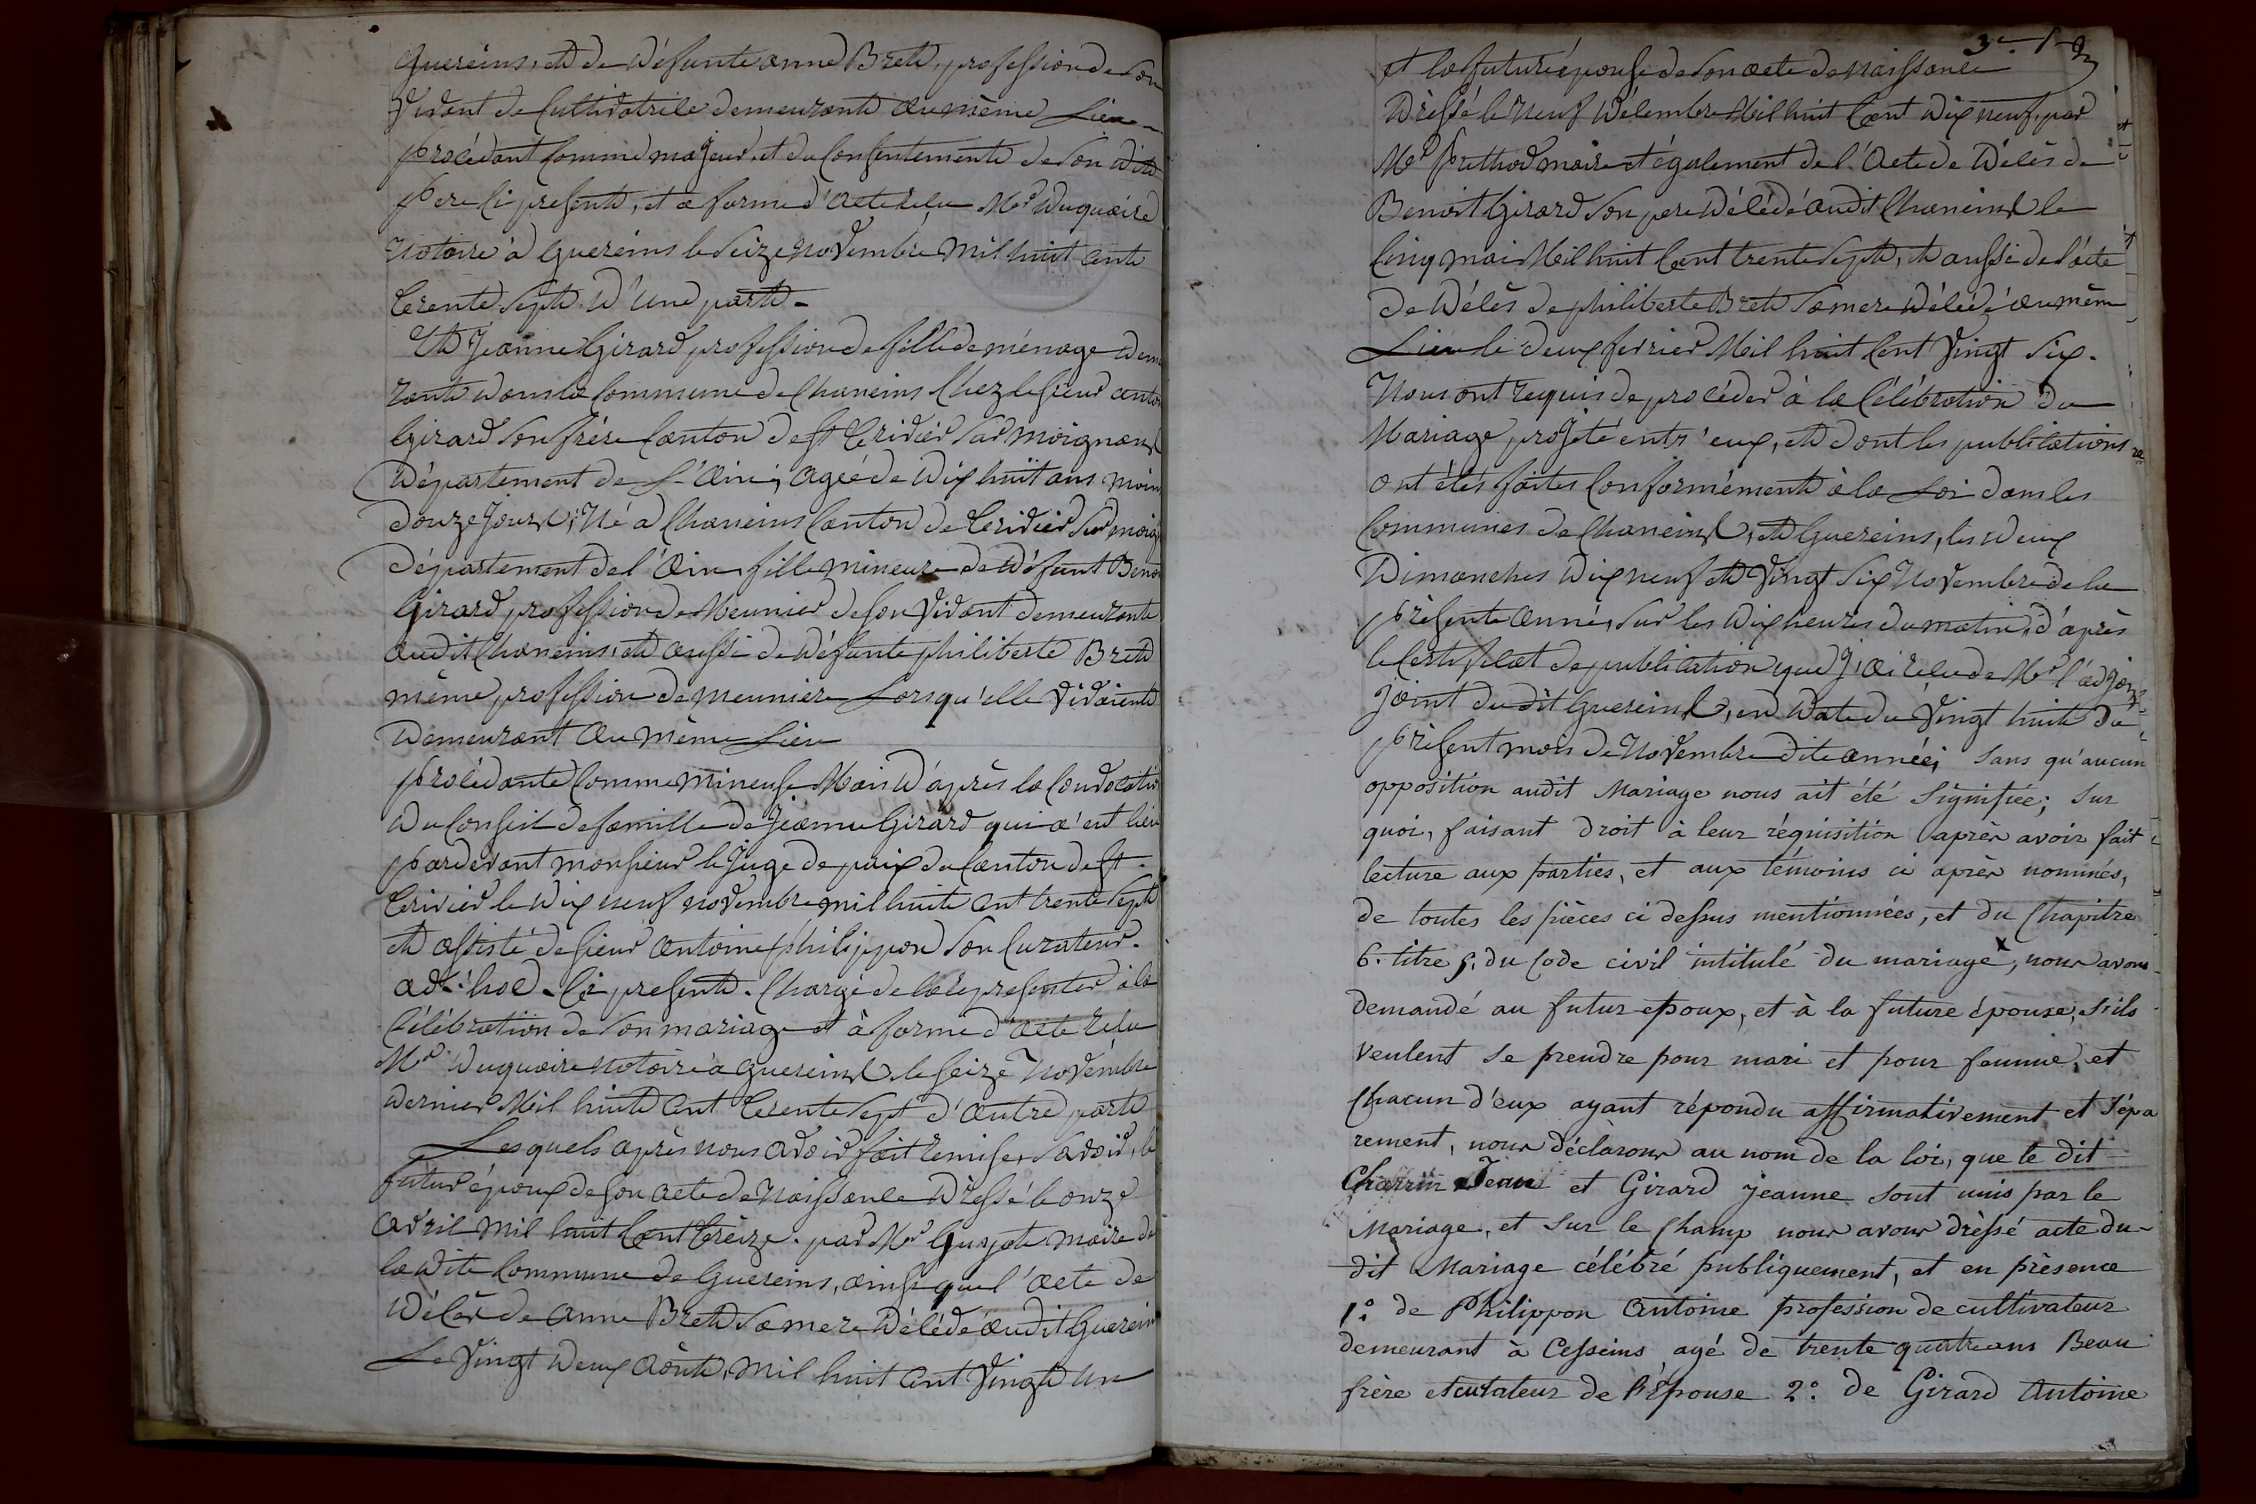 Guereins, et de défunte anne Bret, profession de Son
Vivant de Cultivatrice demeurante au même Lieu
procédant Comme majeur, et du Consentement de Son dit
pere ci present, et a forme d'acte reçu Mr Duquaire
Notaire à Guereins le Seize novembre mil huit cent
trente Sept. D'une part
Et Jeanne Girard profession de fille de ménage demeu
rante dans la Commune de Chaneins Chez le Sieur antoi
Girard Son frère Canton de St Trivier Sur moignans
Département de L'Ain, agée de dix huit ans moins
douze Jours, Né a Chaneins Canton de Trivier Sur moig
département de l'Ain, fille mineure de défunt Benoi
Girard, profession de Meunier de Son Vivant demeurante
audit Chaneins, et aussi de défunte philiberte Bret
même profession de meuniere Lorsqu'elle Vivaient
Demeurant au même Lieu
procédante Comme mineuse Mais d'après la Convocatio
du Conseil de famille de Jeanne Girard qui a eut lieu
pardevant monsieur le Juge de paix du Canton de St
Trivier le dix neuf novembre mil huit cent trente Sept
et assisté de Sieur antoine philippon Son Curateur
ad-hoc - Ci present - Chargé de la representer à la
Célébration de Son mariage et à forme d'acte reçu
Mr Duquaire notaire à Guereins le Seize Novembre
dernier Mil huit cent trente Sept d'autre part
Lesquels après nous avoir fait remise, Savoir, le
futur époux de Son acte de Naissance Dressé le onze
avril mil huit Cent treize. par Mr Guyot maire de
la dite Commune de Guereins, ainsi que l'acte de
Décès de anne Bret Sa mere décédé audit Guereins
Le Vingt deux Août, mil huit cent Vingt un
et la future épouse de Son acte de Naissance
Dressé le neuf Décembre Mil huit Cent Dix neuf, par
Mr maire et également de l'Acte de Décès de
Benoit Girard Son pere décédé audit Chaneins le
Cinq mai Mil huit Cent trente Sept, et aussi de l'acte
de Décès de philiberte Bret Sa mere décédé au mêm
Lieu le deux fevrier Mil huit Cent Vingt Six.
Nous ont requis de procéder à la Célébration du
Mariage projeté entr'eux, et dont les publications
ont étés faites Conformément à la Loi dans les
Communes de Chaneins, et Guereins, les deux
Dimanches dix neuf et Vingt Six Novembre de la
présente année, Sur les dix heures du matin, d'après
le Certificat de publication que J'ai reçu de Mr l'ad
joint du dit Guereins, en date du Vingt huit du
présent mois de Novembre dite année; sans qu'aucun
opposition audit Mariage nous ait été signifiée; sur
quoi, faisant droit à leur réquisition après avoir fait
lecture aux parties, et aux témoins ci après nommés,
de toutes les pièces ci dessus mentionnées, et du Chapitre
6. titre 5. du Code civil intitulé du mariage, nous avons
demandé au futur epoux, et à la future épouse, s'ils
veulent se prendre pour mari et pour femme, et
Chacun d'eux ayant répondu affirmativement et sépa
rement, nous déclarons au nom de la loi, que le dit
Charrin Jean et Girard jeanne sont unis par le
Mariage, et sur le Champ nous avons dréssé acte du-
dit Mariage célébré publiquement, et en présence
1.° de Philippon Antoine profession de cultivateur
demeurant à Cesseins agé de trente quatre ans Beau
frère et curateur de l'Epouse 2.° de Girard Antoine